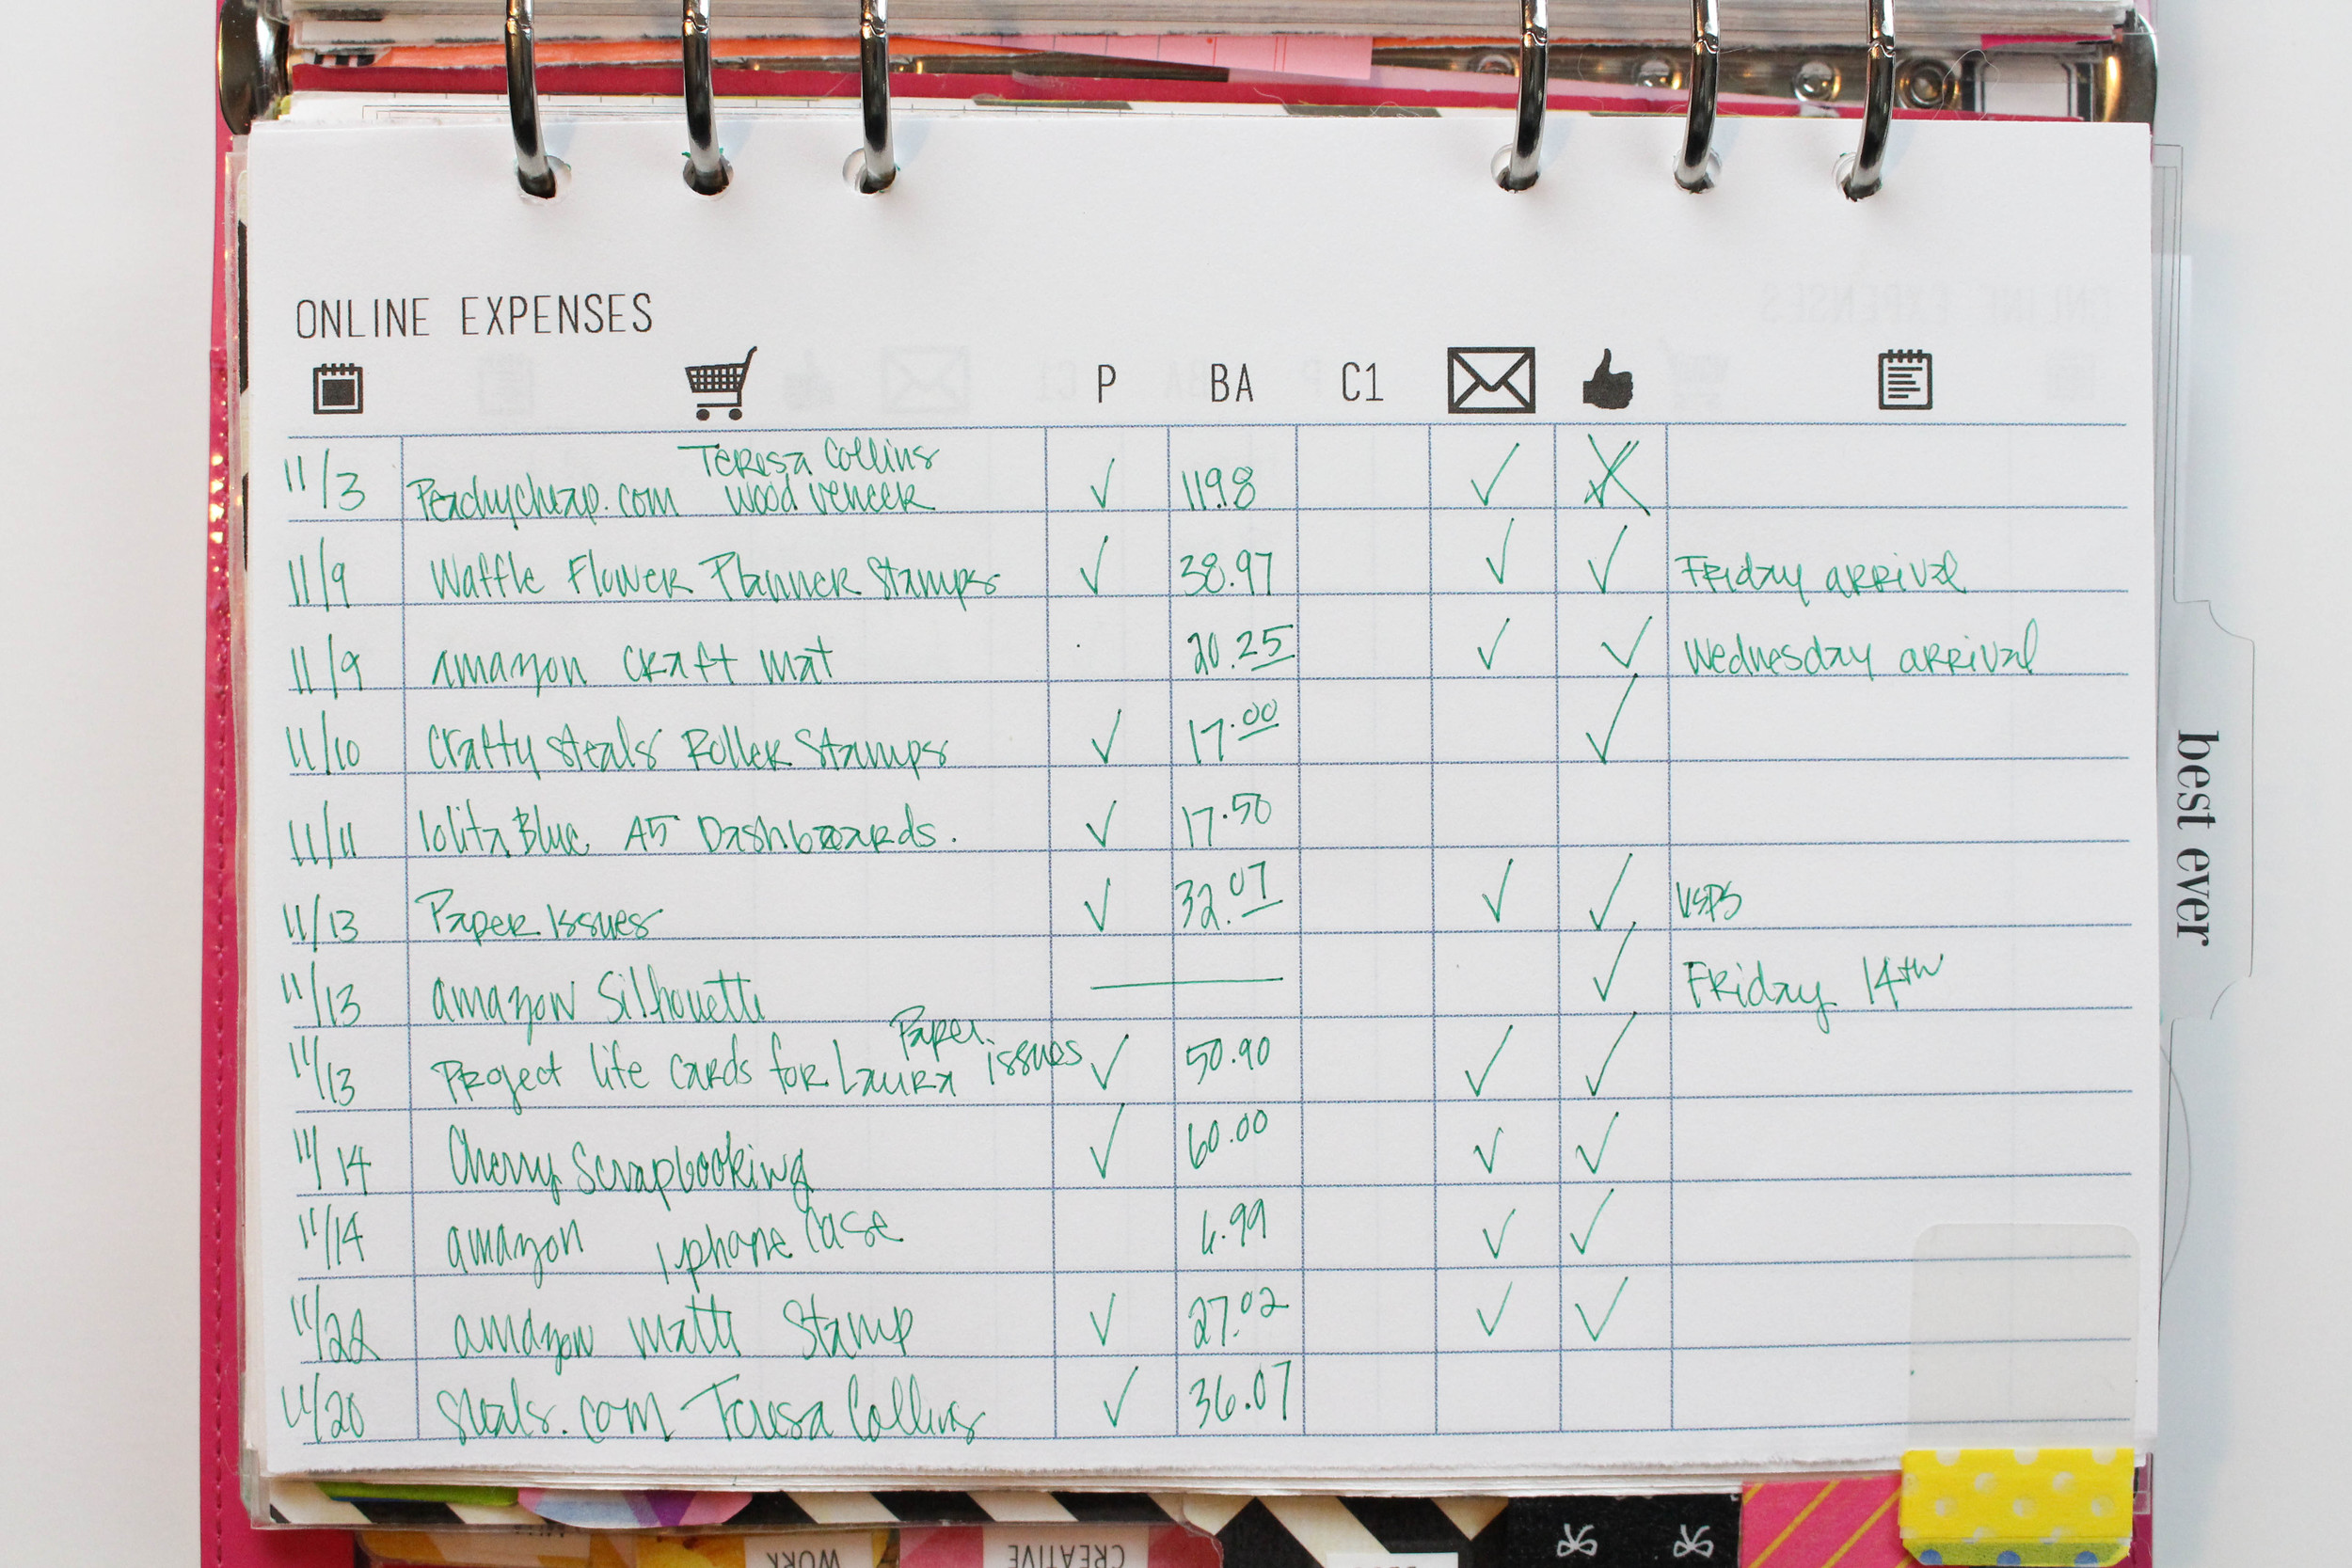 ONLINE EXPENSES
P BA C1
11/3 Peachycheap.com Teresa Collins wood veneer ✓ 119.8 ✓
11/9 Waffle Flower Planner Stamps ✓ 38.97 ✓ ✓ Friday arrival
11/9 amazon craft mat 20.25 ✓ ✓ Wednesday arrival
11/10 Crafty Steals Roller Stamps ✓ 17.00 ✓
11/11 lolita Blue A5 Dashboards. ✓ 17.50
11/13 Paper Issues ✓ 32.07 ✓ ✓ USPS
11/13 amazon Silhouette — ✓ Friday 14th
11/13 Project life cards for Laura Paper issues ✓ 50.90 ✓ ✓
11/14 Cherry Scrapbooking ✓ 60.00 ✓ ✓
11/14 amazon iphone Case 6.99 ✓ ✓
11/22 amazon matte Stamp ✓ 27.02 ✓ ✓
11/20 Steals.com - Teresa Collins ✓ 36.07
best ever
WORK
CREATIVE